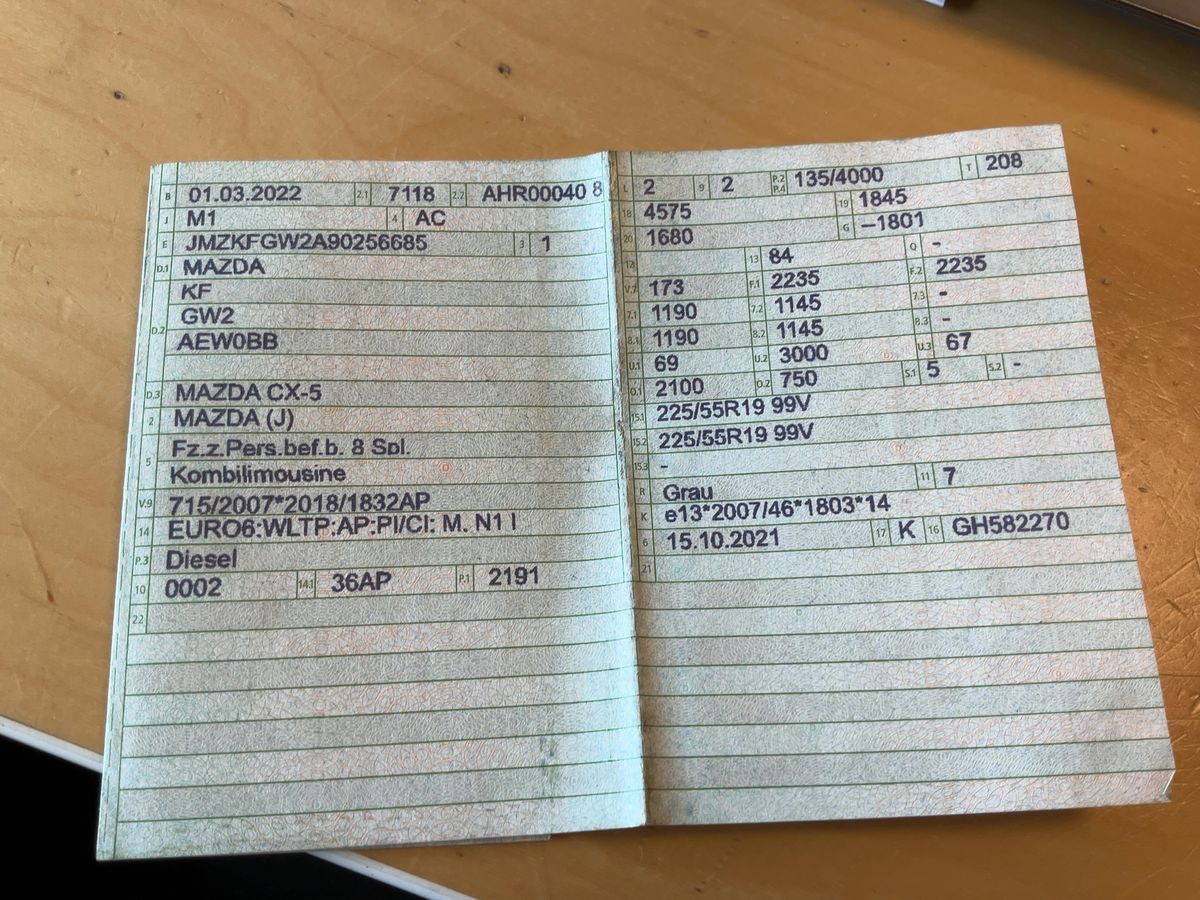 B 01.03.2022 2.1 7118 2.2 AHR00040 8
J M1 4 AC
E JMZKFGW2A90256685 3 1
D.1 MAZDA
KF
D.2 GW2
AEW0BB
D.3 MAZDA CX-5
2 MAZDA (J)
5 Fz.z.Pers.bef.b. 8 Spl.
Kombilimousine
V.9 715/2007*2018/1832AP
14 EURO6:WLTP:AP:PI/CI: M. N1 I
P.3 Diesel
10 0002 14.1 36AP P.1 2191
22
L 2 9 2 P.2 P.4 135/4000 T 208
18 4575 19 1845
20 1680 G –1801
12 13 84 Q -
V.7 173 F.1 2235 F.2 2235
7.1 1190 7.2 1145 7.3 -
8.1 1190 8.2 1145 8.3 -
U.1 69 U.2 3000 U.3 67
O.1 2100 O.2 750 S.1 5 S.2 -
15.1 225/55R19 99V
15.2 225/55R19 99V
15.3 -
R Grau 11 7
K e13*2007/46*1803*14
6 15.10.2021 17 K 16 GH582270
21